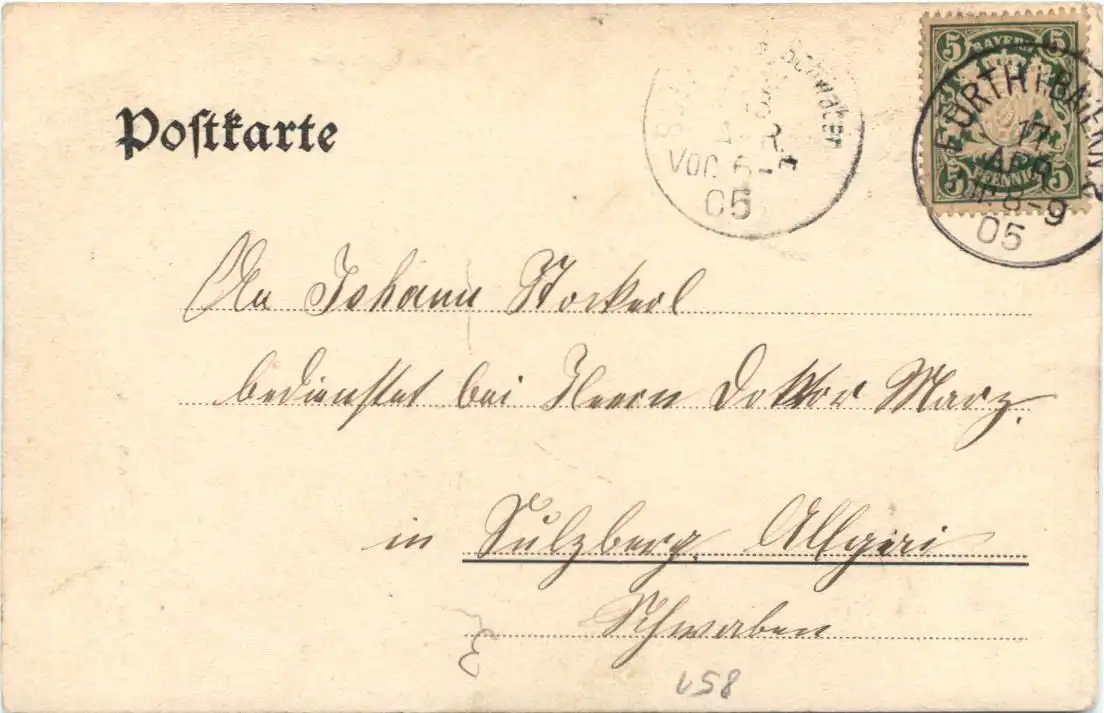 Postkarte
5 BAYERN 5
5 PFENNIG 5
FÜRTH I. BAYERN 2
17
APR
8-9
05
Schwaben
Vor. 6-7
05
An Johann Stockerl
bedienstet bei Herrn Doktor Marz.
in Sulzberg. Allgäu
Schwaben